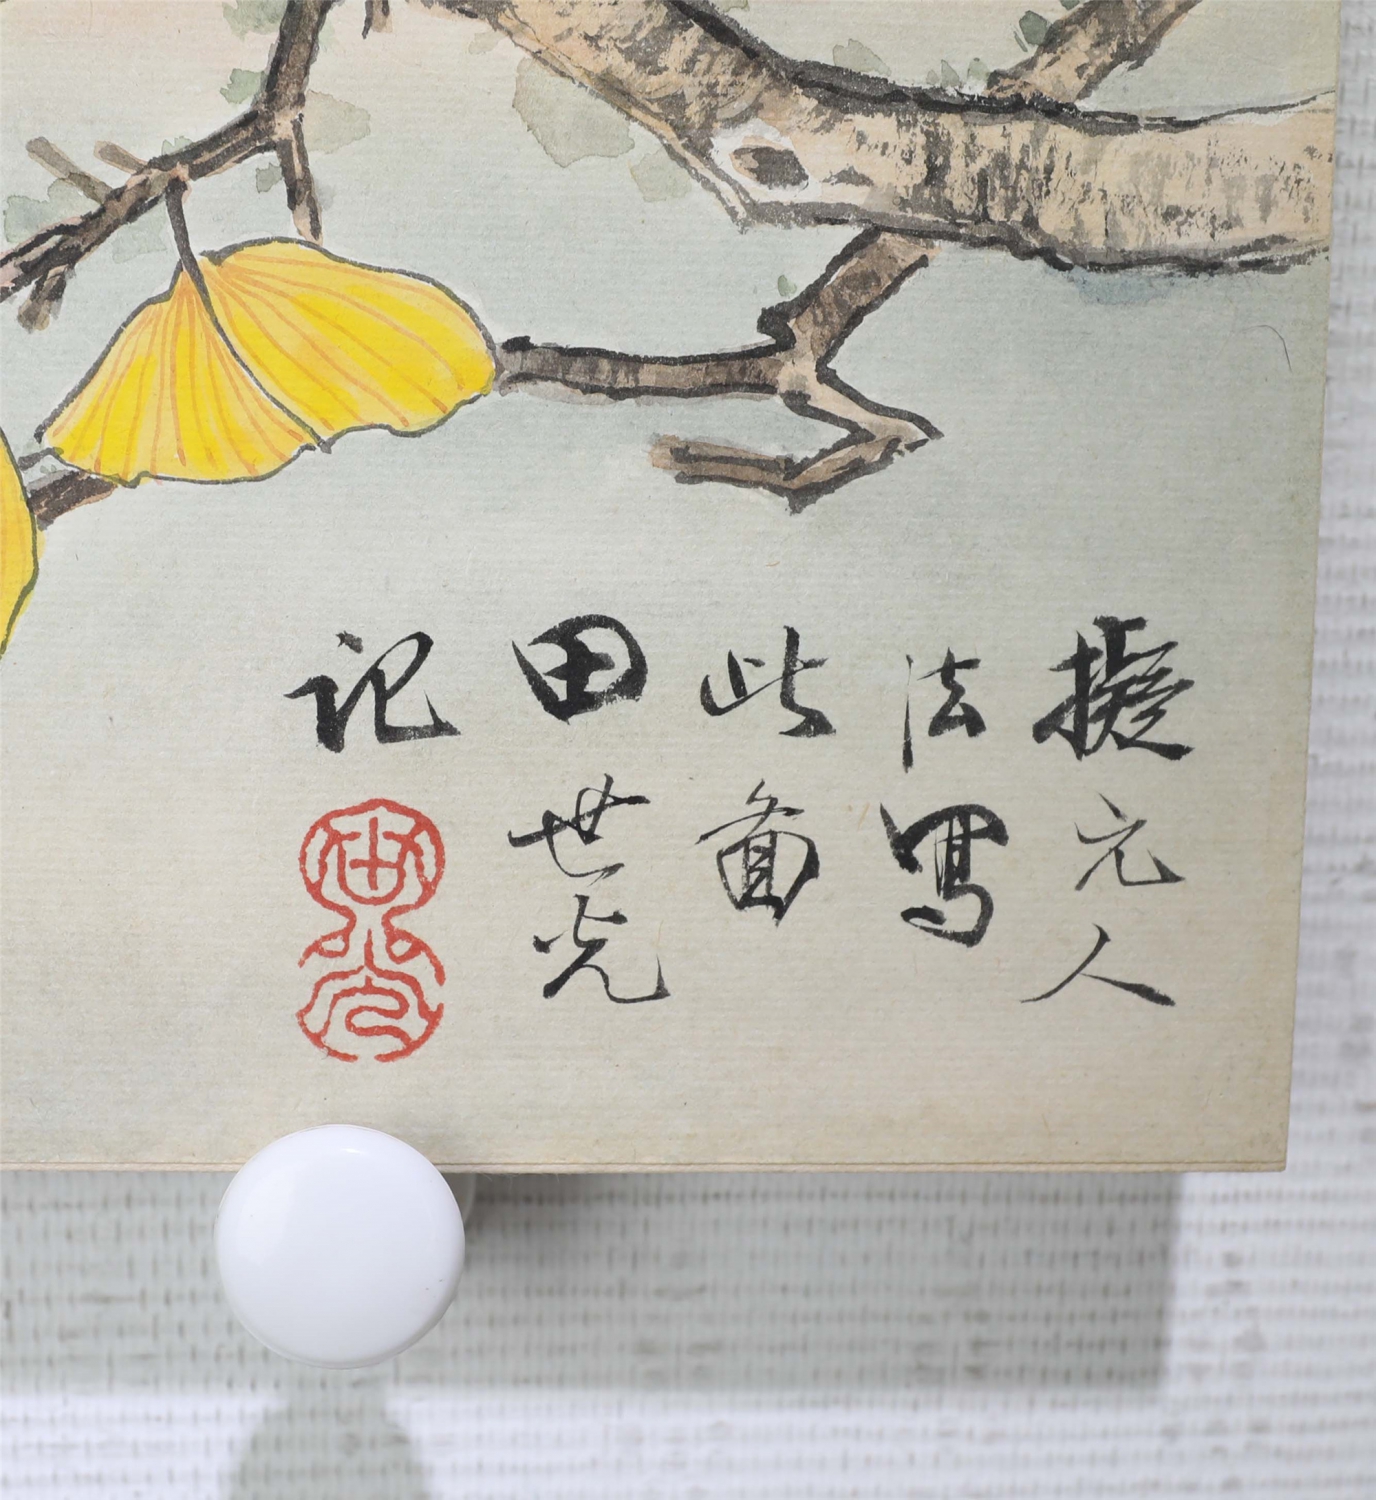 擬元人
法寫
此圖
田世光
記